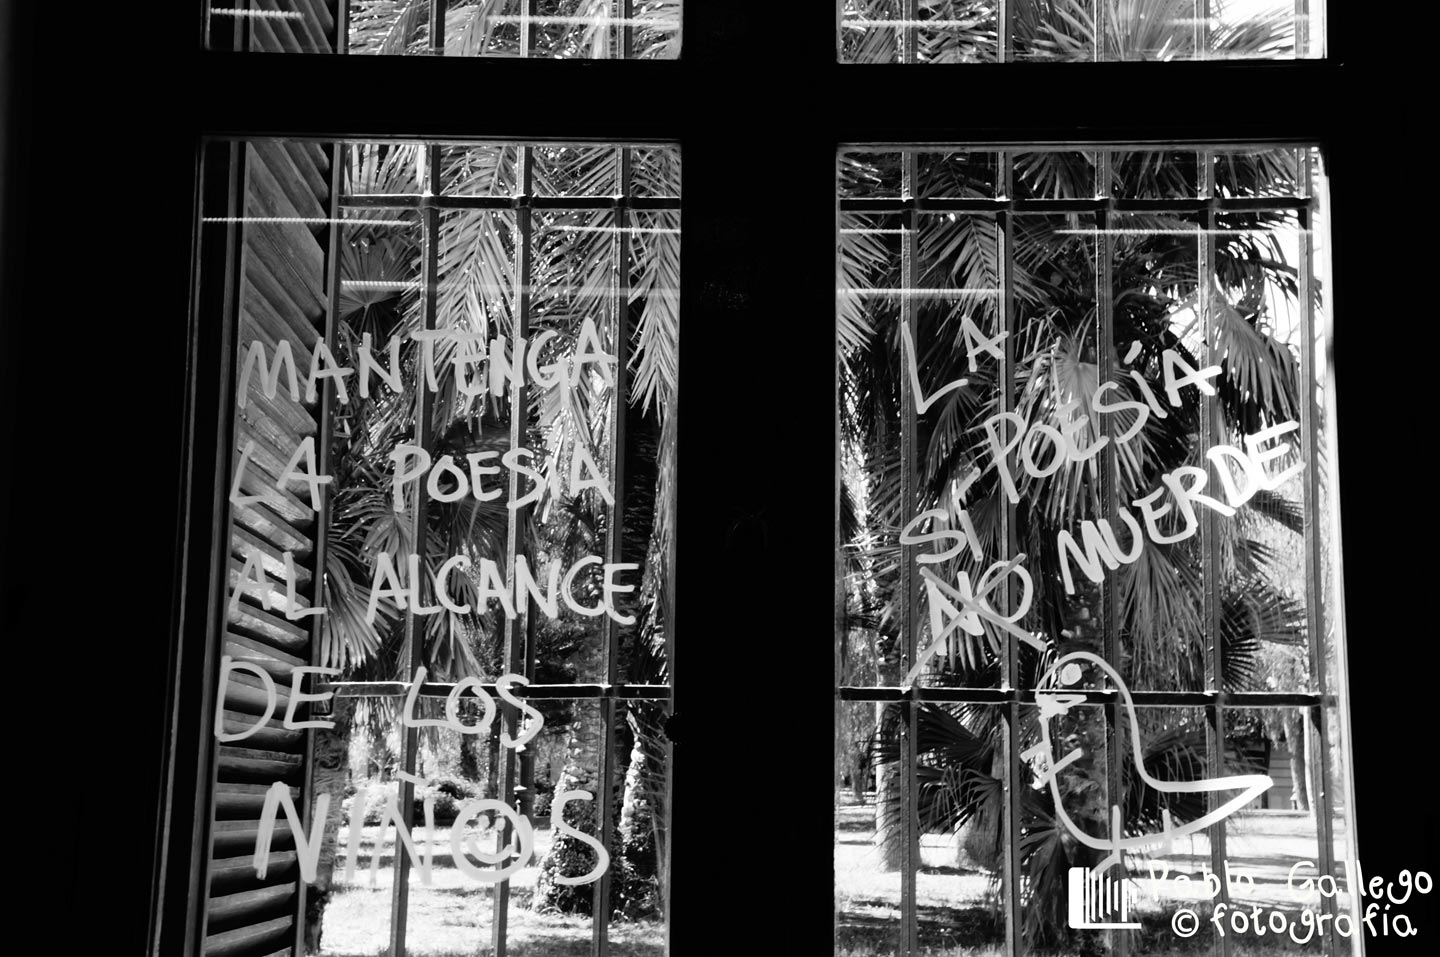 MANTENGA
LA POESIA
AL ALCANCE
DE LOS
NIÑOS
LA
POESÍA
SÍ
NO MUERDE
Pablo Gallego
© fotografía